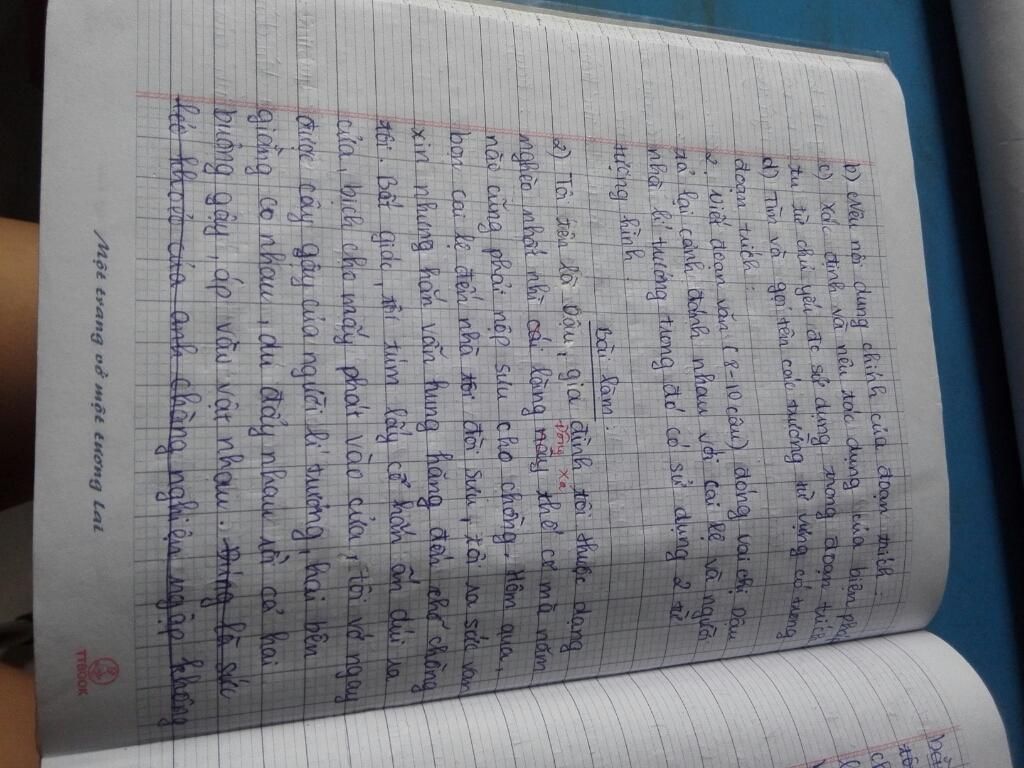 b) Nêu nội dung chính của đoạn trích.
c) xác định và nêu tác dụng của biện pháp
tu từ chủ yếu đc sử dụng trong đoạn trích
d) Tìm và gọi tên các trường từ vựng có trong
đoạn trích.
2. viết đoạn văn (8-10 câu) đóng vai chị Dậu
tả lại cảnh đánh nhau với cai lệ và người
nhà lí trưởng trong đó có sử dụng 2 từ
tượng hình
Bài làm:
2) Tôi tên là Dậu, gia đình tôi thuộc dạng
nghèo nhất nhì cái làng này thế cơ mà năm
vùng xã
nào cũng phải nộp sưu cho chồng. Hôm qua,
bọn cai lệ đến nhà tôi đòi sưu, tôi ra sức van
xin nhưng hắn vẫn hung hăng đến chỗ chồng
tôi. Bất giác, tôi túm lấy cổ hắn ấn dúi ra
cửa, bịch cho mấy phát vào cửa, tôi vớ ngay
được cây gậy của người lí trưởng, hai bên
giằng co nhau, du đẩy nhau rồi cả hai
buông gậy, áp vào vật nhau. Đúng là sức
lẻo khoẻo của anh chàng nghiện ngập không
Một trang vở một tương lai
TTBOOK